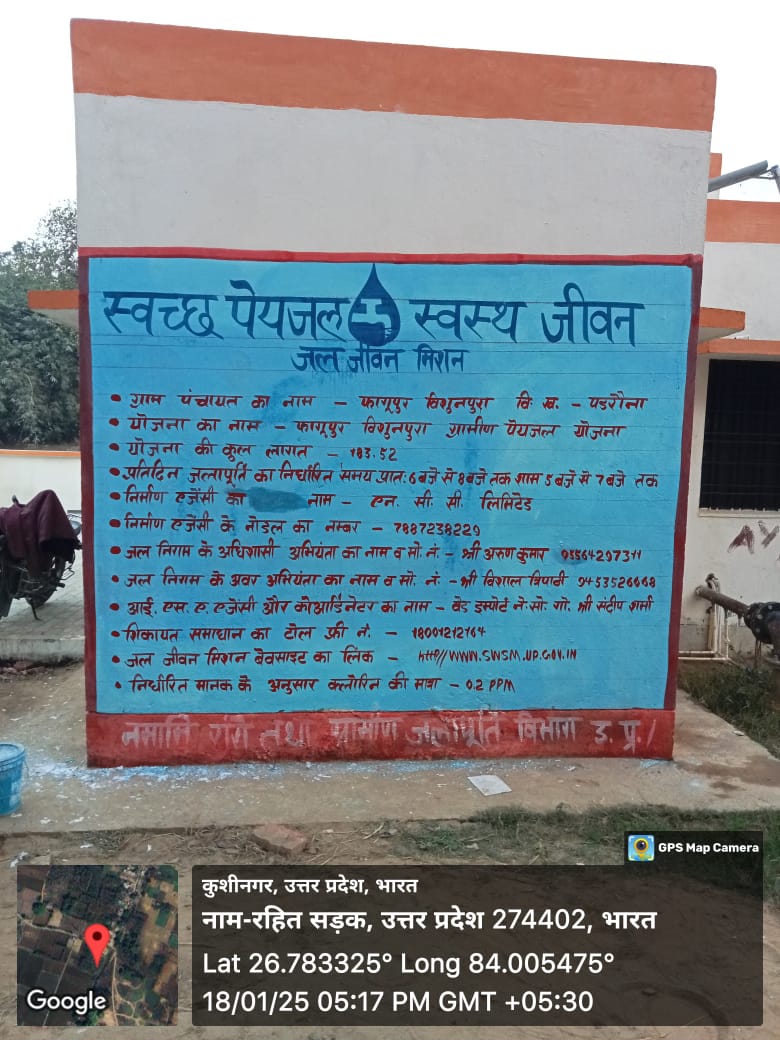 स्वच्छ पेयजल स्वस्थ जीवन
जल जीवन मिशन
• ग्राम पंचायत का नाम – फागूपुर विशुनपुरा वि. ख. – पडरौना
• योजना का नाम – फागूपुर विशुनपुरा ग्रामीण पेयजल योजना
• योजना की कुल लागत – 183.52
• प्रतिदिन जलापूर्ति का निर्धारित समय प्रातः 6 बजे से 8 बजे तक शाम 5 बजे से 7 बजे तक
• निर्माण एजेंसी का नाम – एन. सी. सी. लिमिटेड
• निर्माण एजेंसी के नोडल का नम्बर – 7887238229
• जल निगम के अधिशासी अभियंता का नाम व मो. नं. – श्री अरुण कुमार
• जल निगम के अवर अभियंता का नाम व मो. नं. – श्री विशाल त्रिपाठी 9453526668
• आई. एस. ए. एजेंसी और कोआर्डिनेटर का नाम – वेड इस्पोर्ट ने. सो. गो. श्री संदीप शर्मा
• शिकायत समाधान का टोल फ्री नं. – 18001212164
• जल जीवन मिशन बेवसाइट का लिंक – http//WWW.SWSM.UP.GOV.IN
• निर्धारित मानक के अनुसार क्लोरिन की मात्रा – 0.2 PPM
नमामि गंगे तथा ग्रामीण जलापूर्ति विभाग उ. प्र. /
GPS Map Camera
कुशीनगर, उत्तर प्रदेश, भारत
नाम-रहित सड़क, उत्तर प्रदेश 274402, भारत
Lat 26.783325° Long 84.005475°
18/01/25 05:17 PM GMT +05:30
Google